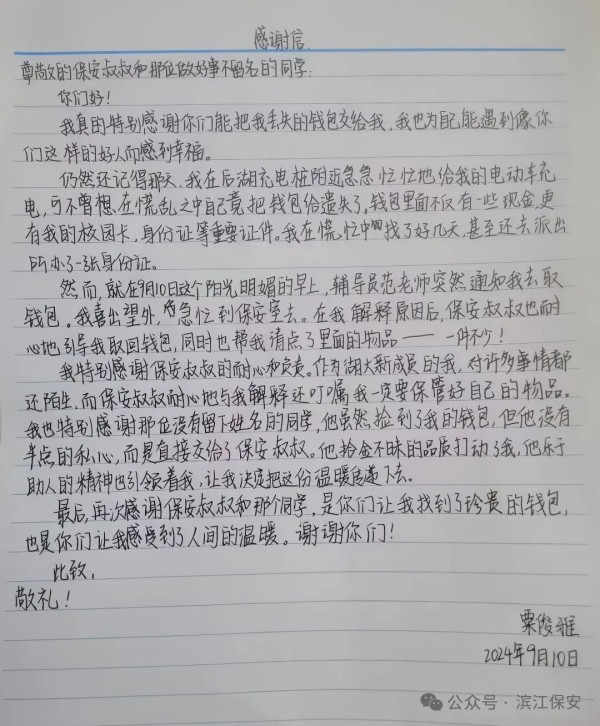 感谢信
尊敬的保安叔叔和那位做好事不留名的同学:
你们好!
我真的特别感谢你们能把我丢失的钱包交给我,我也为自己能遇到像你
们这样的好人而感到幸福。
仍然还记得那天,我在后湖充电桩附近急急忙忙地给我的电动车充
电,可不曾想,在慌乱之中自己竟把钱包给遗失了。钱包里面不仅有一些现金,更
有我的校园卡,身份证等重要证件。我在慌忙中找了好几天,甚至还去派出
所办了一张身份证。
然而,就在9月10日这个阳光明媚的早上,辅导员范老师突然通知我去取
钱包。我喜出望外,急忙到保安室去。在我解释原因后,保安叔叔也耐
心地引导我取回钱包,同时也帮我清点了里面的物品——一件不少!
我特别感谢保安叔叔的耐心和负责。作为湖大新成员的我,对许多事情都
还陌生,而保安叔叔耐心地与我解释还叮嘱我一定要保管好自己的物品。
我也特别感谢那位没有留下姓名的同学,他虽然捡到了我的钱包,但他没有
半点的私心,而是直接交给了保安叔叔。他拾金不昧的品质打动了我,他乐于
助人的精神也引领着我,让我决定把这份温暖传递下去。
最后,再次感谢保安叔叔和那个同学,是你们让我找到了珍贵的钱包,
也是你们让我感受到了人间的温暖。谢谢你们!
此致,
敬礼!
粟俊雅
2024年9月10日
公众号·滨江保安